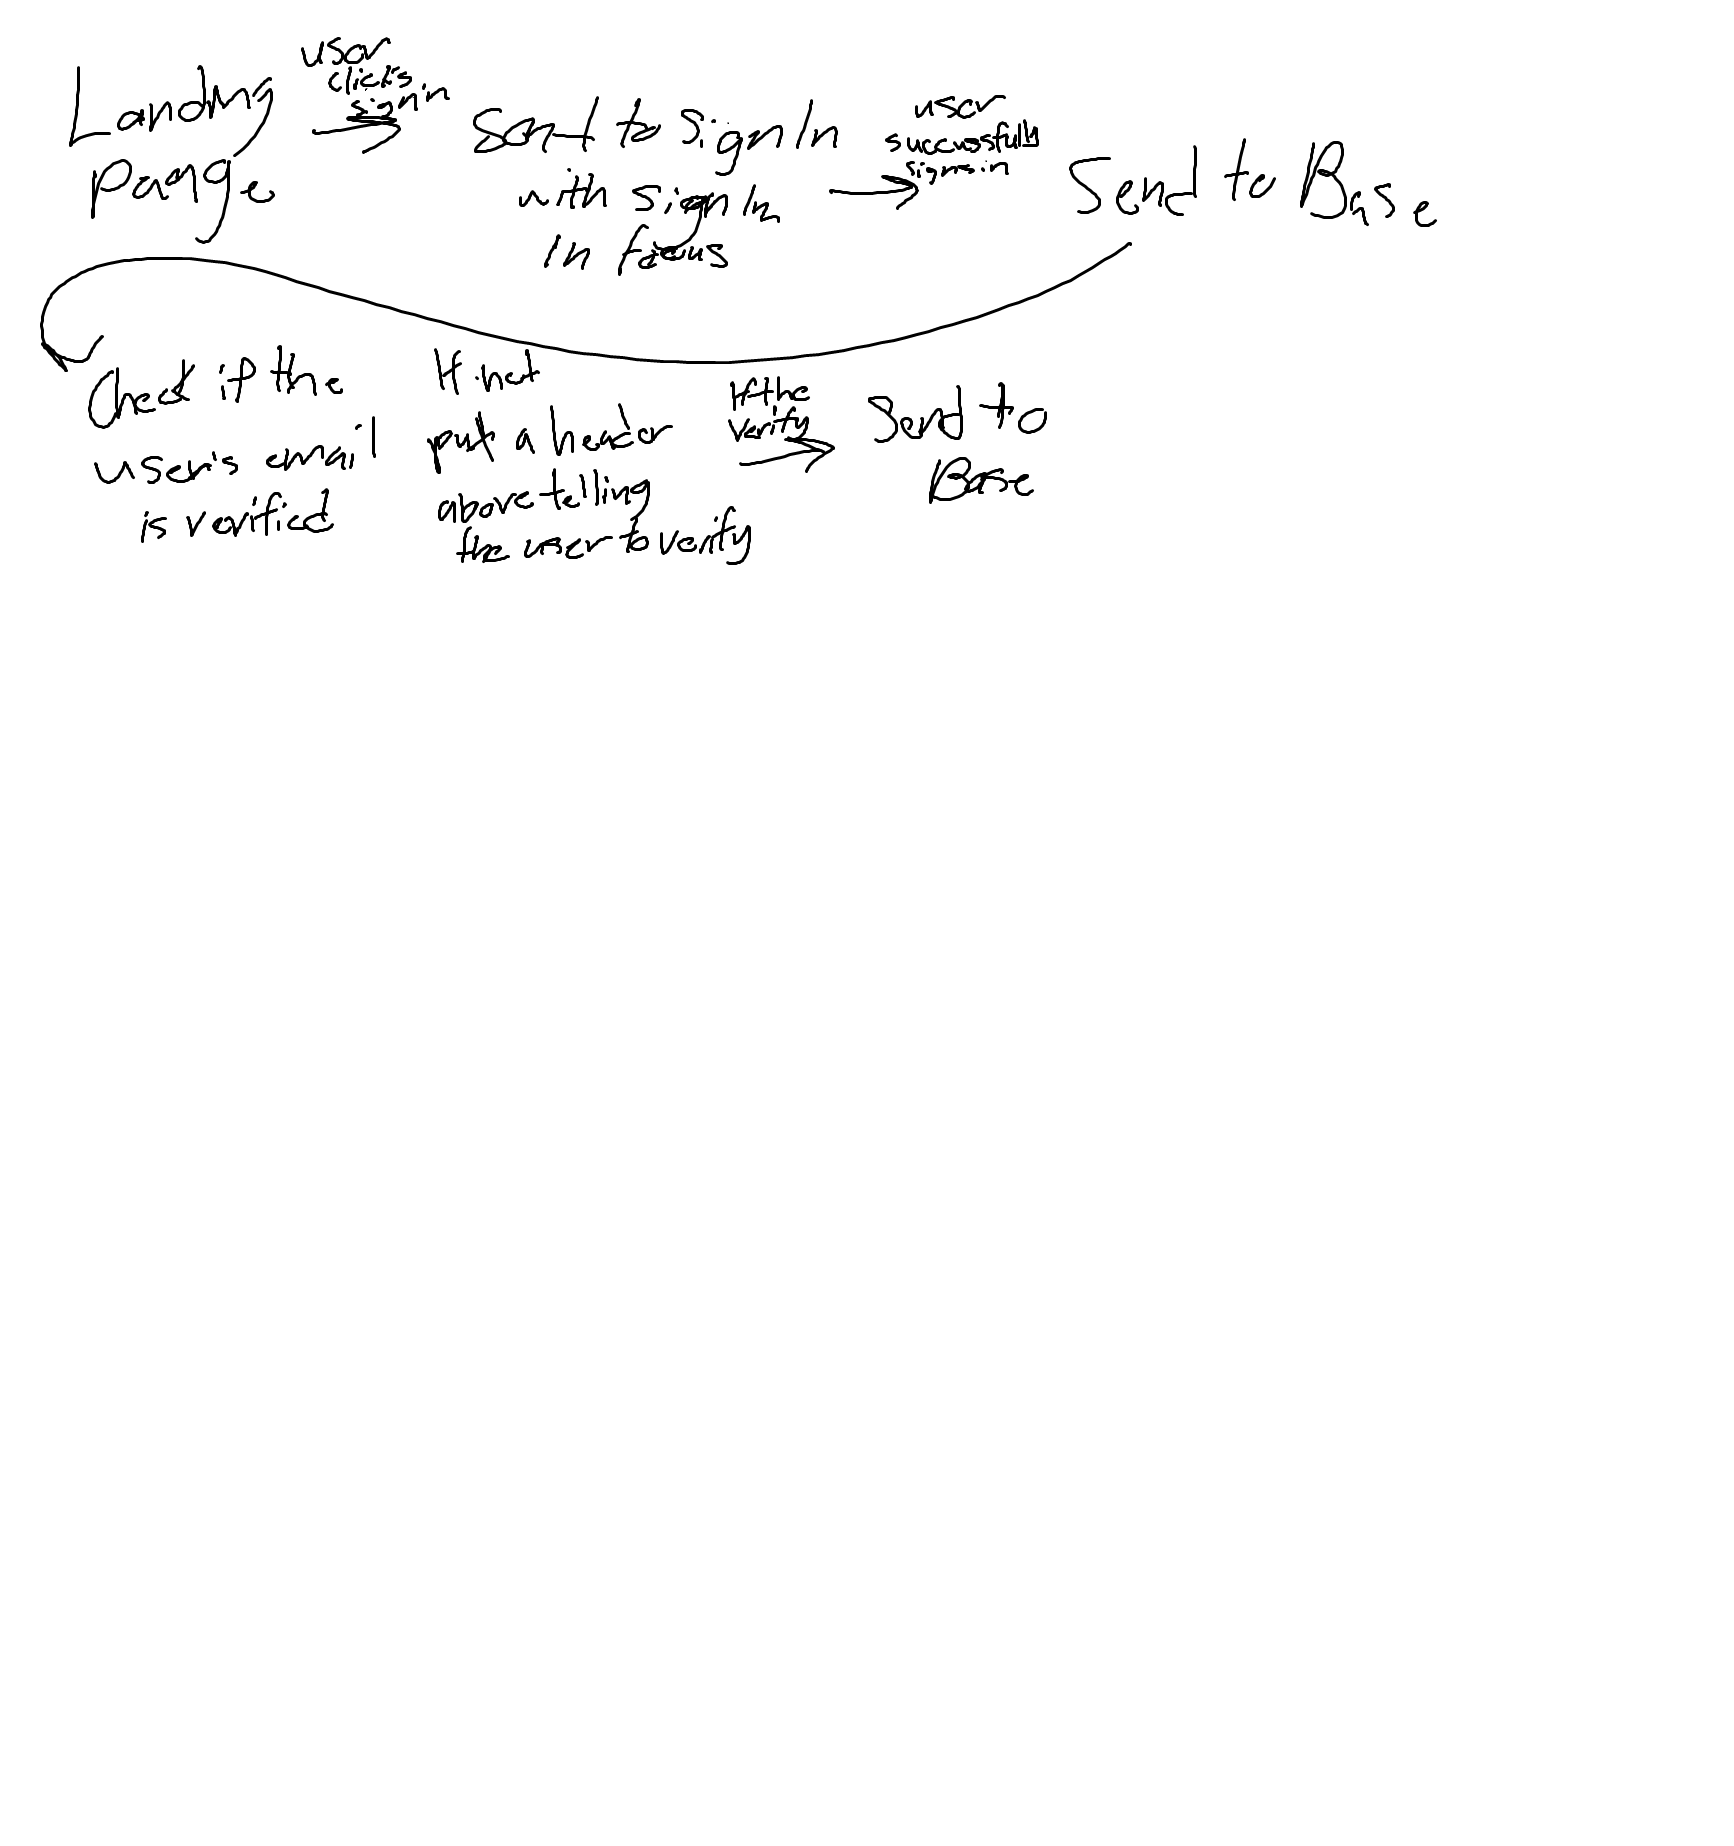 Landing
Pange
user
clicks
sign in
Sent to Sign In
with Sign In
In focus
user
successfully
signs in
Send to Base
Check if the
user's email
is verified
If not
put a header
above telling
the user to verify
If the
verify
Send to
Base